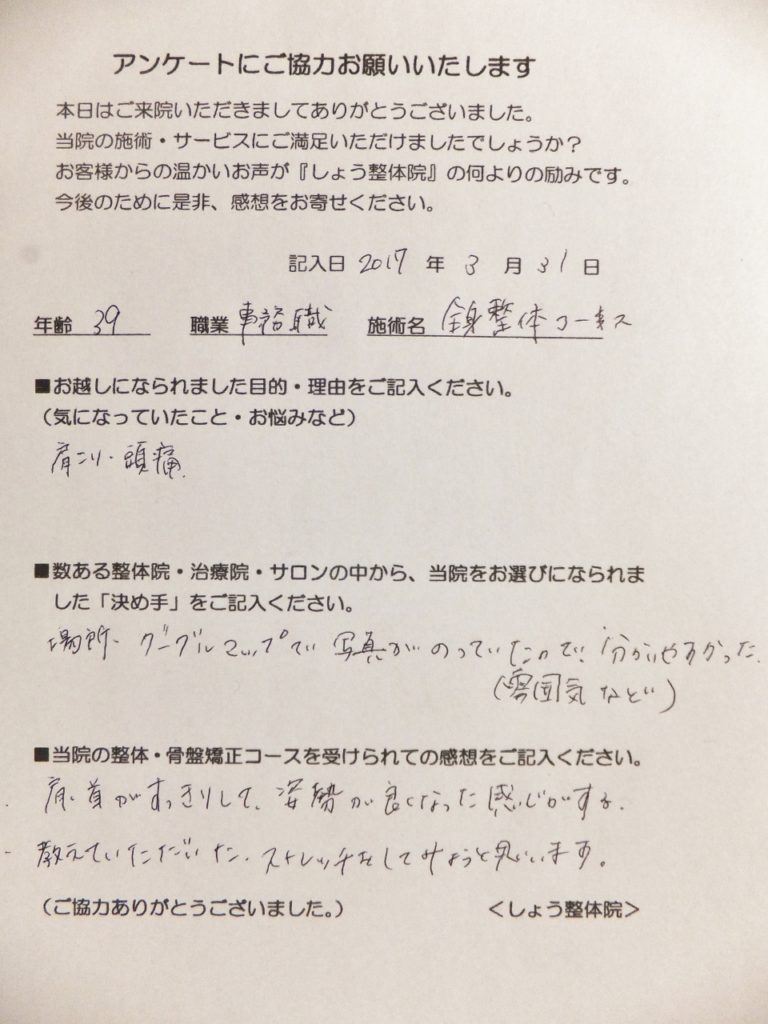 アンケートにご協力お願いいたします
本日はご来院いただきましてありがとうございました。
当院の施術・サービスにご満足いただけましたでしょうか？
お客様からの温かいお声が『しょう整体院』の何よりの励みです。
今後のために是非、感想をお寄せください。
記入日 2017 年 3 月 31 日
年齢 39 職業 事務職 施術名 全身整体コース
■お越しになられました目的・理由をご記入ください。
（気になっていたこと・お悩みなど）
肩こり・頭痛
■数ある整体院・治療院・サロンの中から、当院をお選びになられま
した「決め手」をご記入ください。
場所・グーグルマップで写真がのっていたので、分かりやすかった。
（雰囲気など）
■当院の整体・骨盤矯正コースを受けられての感想をご記入ください。
・肩、首がすっきりして、姿勢が良くなった感じがする。
・教えていただいた、ストレッチをしてみようと思います。
（ご協力ありがとうございました。） ＜しょう整体院＞